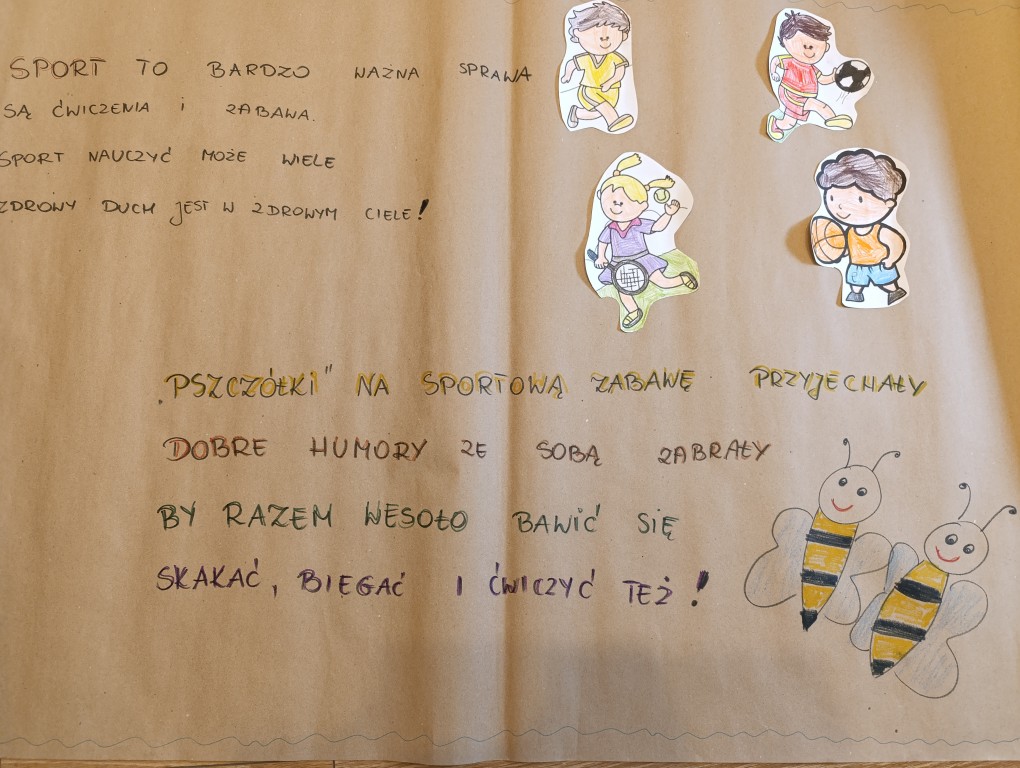 SPORT TO BARDZO WAŻNA SPRAWA
SĄ ĆWICZENIA I ZABAWA.
SPORT NAUCZYĆ MOŻE WIELE
ZDROWY DUCH JEST W ZDROWYM CIELE!
„PSZCZÓŁKI" NA SPORTOWĄ ZABAWĘ PRZYJECHAŁY
DOBRE HUMORY ZE SOBĄ ZABRAŁY
BY RAZEM WESOŁO BAWIĆ SIĘ
SKAKAĆ, BIEGAĆ I ĆWICZYĆ TEŻ!